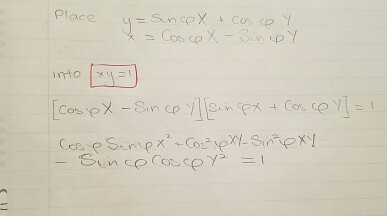 Place y = Sin φ X + Cos φ Y
x = Cos φ X - Sin φ Y
into xy = 1
[Cos φ X - Sin φ Y][Sin φ X + Cos φ Y] = 1
Cos φ Sin φ X² + Cos² φ XY - Sin² φ XY
- Sin φ Cos φ Y² = 1